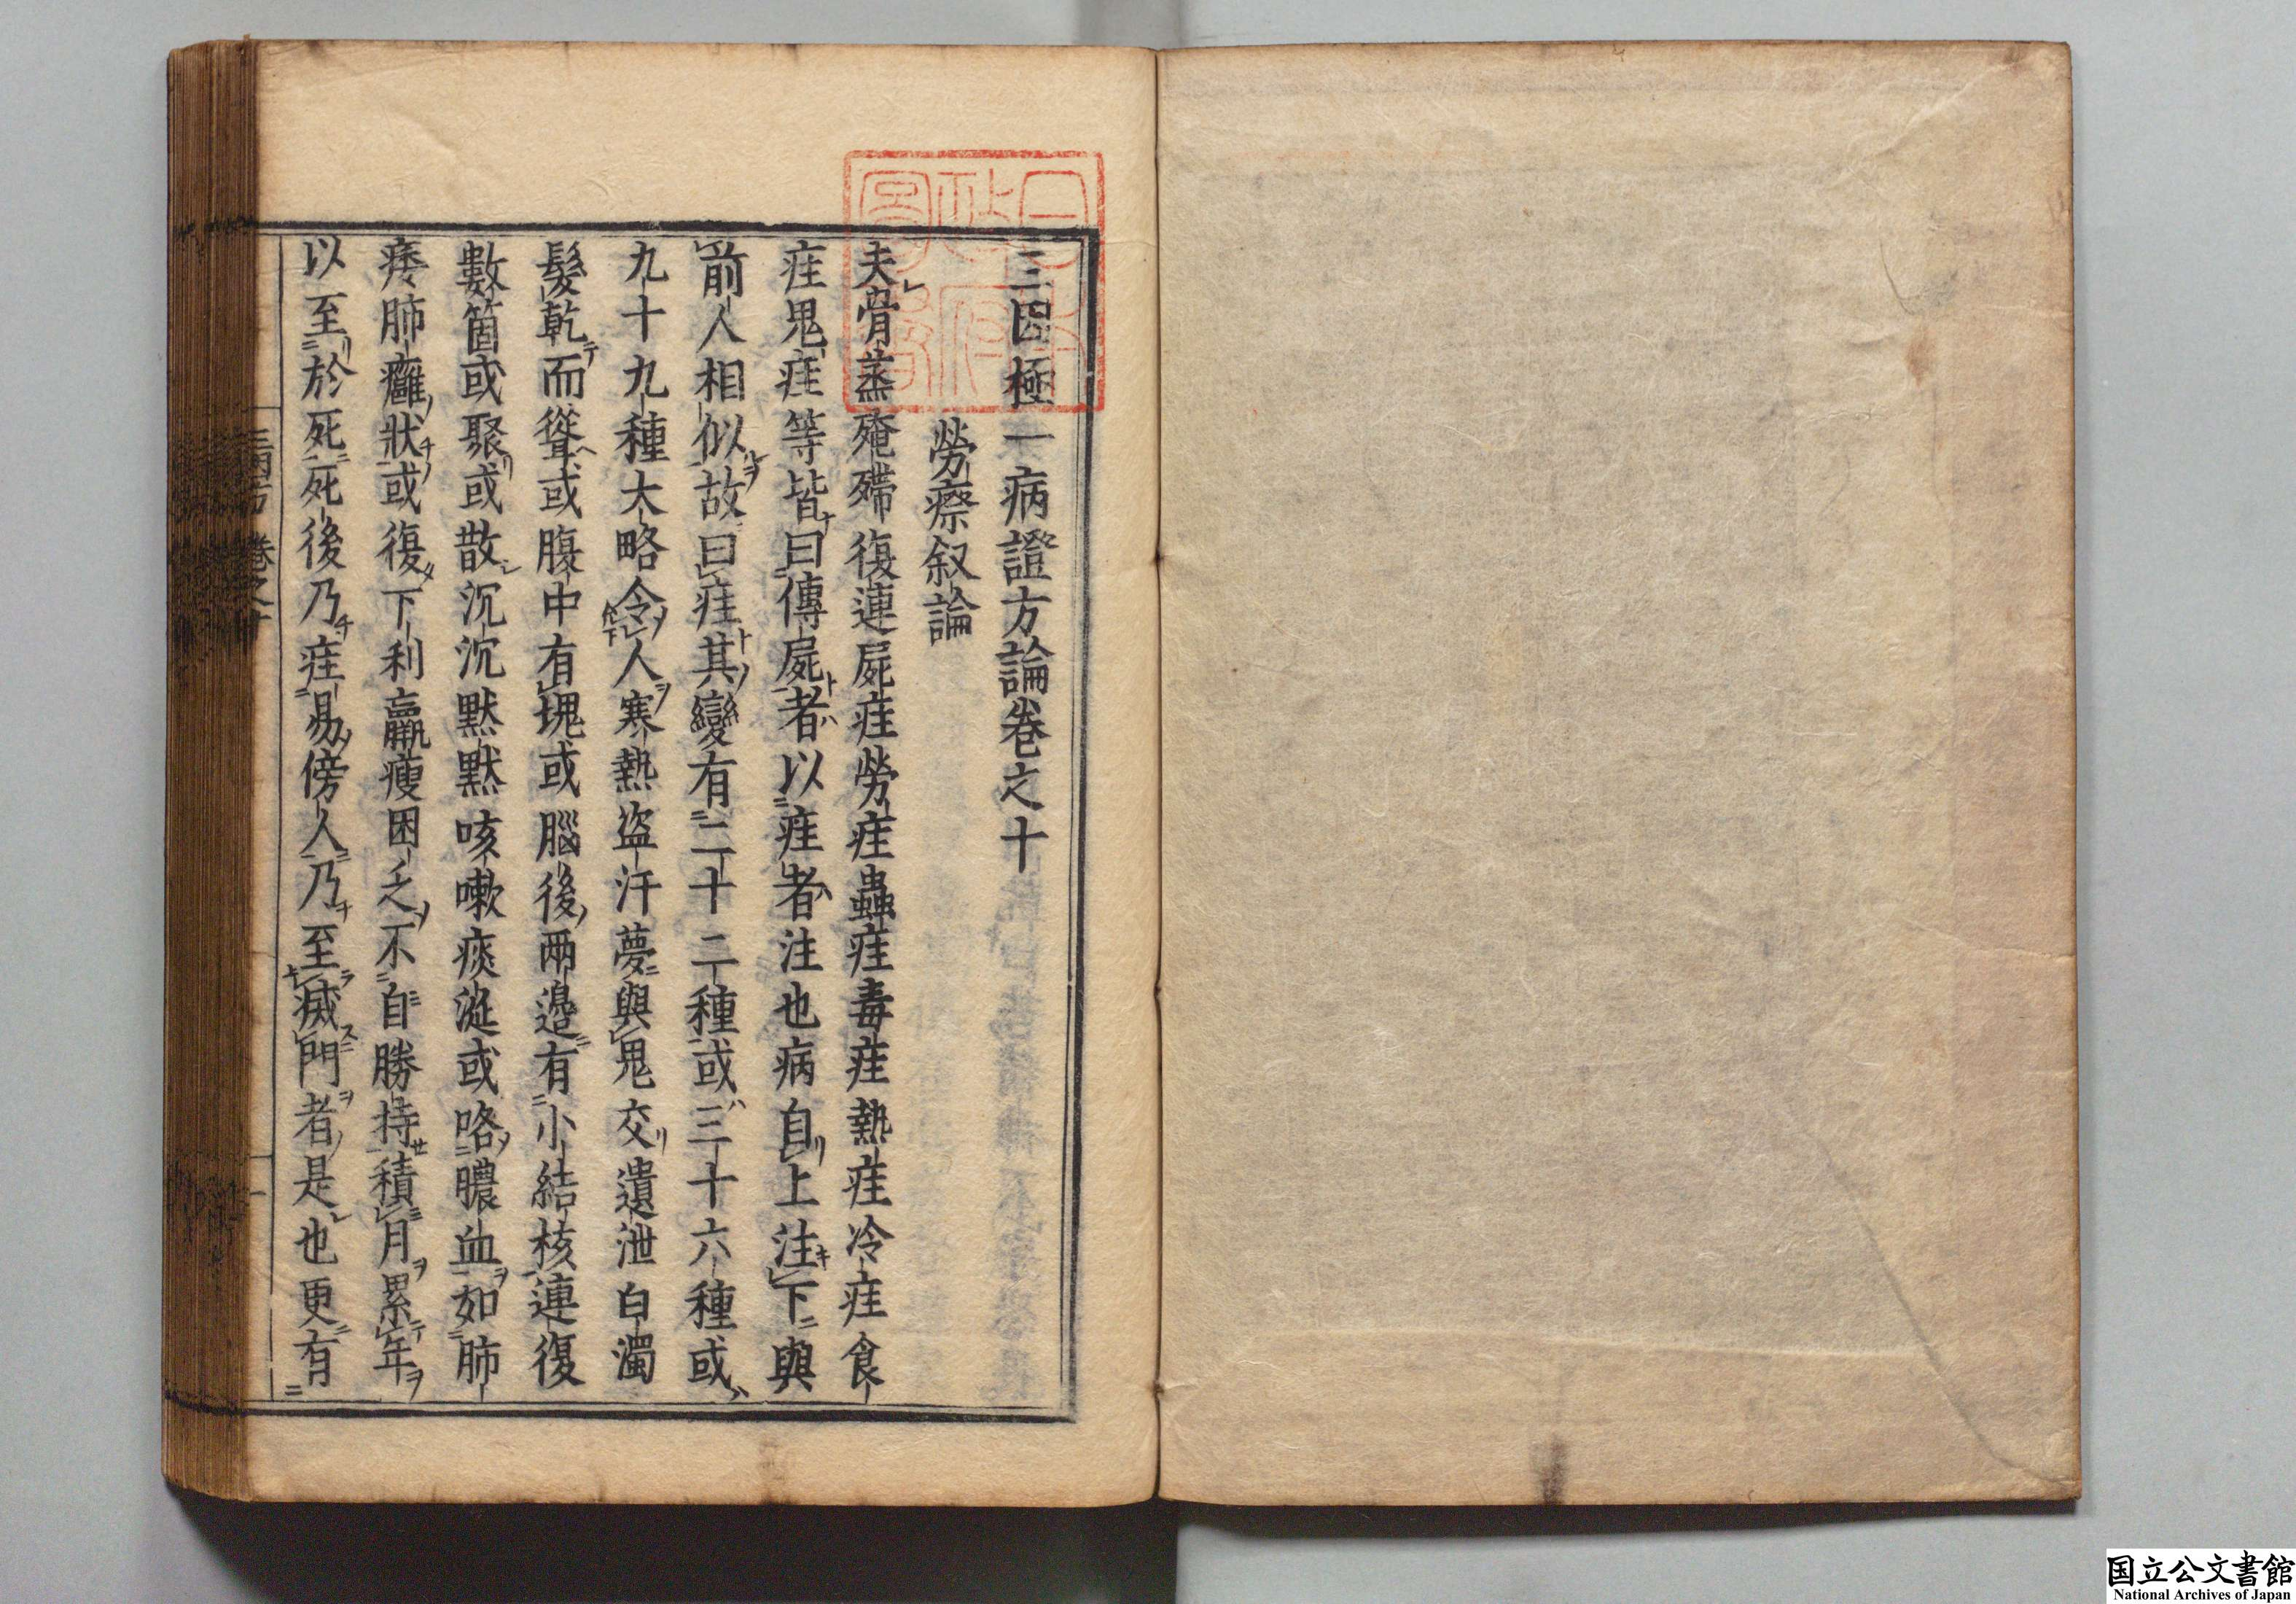 三因極一病證方論卷之十
勞瘵叙論
夫骨蒸殗殜復連屍疰勞疰蟲疰毒疰熱疰冷疰食
疰鬼疰等皆曰傳屍者以疰者注也病自上注下與
前人相似故曰疰其變有二十二種或三十六種或
九十九種大略令人寒熱盜汗夢與鬼交遺泄白濁
髮乾而聳或腹中有塊或腦後兩邊有小結核連復
數箇或聚或散沉沉默默咳嗽痰涎或咯膿血如肺
痿肺癰狀或復下利羸瘦困乏不自勝持積月累年
以至於死死後乃疰易傍人乃至滅門者是也更有
三因方 卷之十
日本政府圖書
国立公文書館
National Archives of Japan